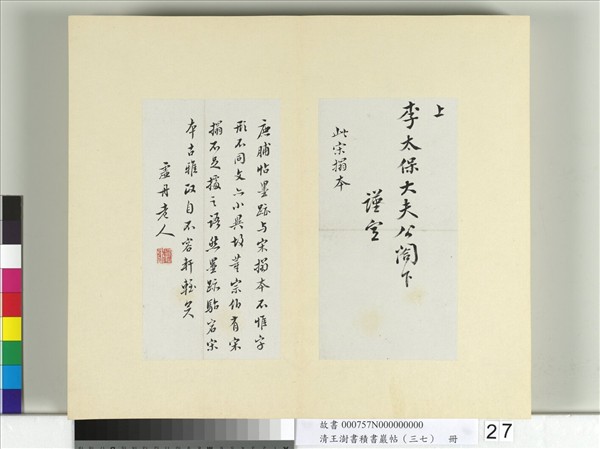 上
李太保大夫公閤下
謹空
此宋搨本
鹿脯帖墨跡与宋搨本不惟字
形不同文亦小異故華宗伯有宋
搨不足據之語然墨跡駘宕宋
本古雅政自不容軒輊矣
虛舟老人
故書 000757N000000000
清王澍書積書巖帖（三七） 冊
27